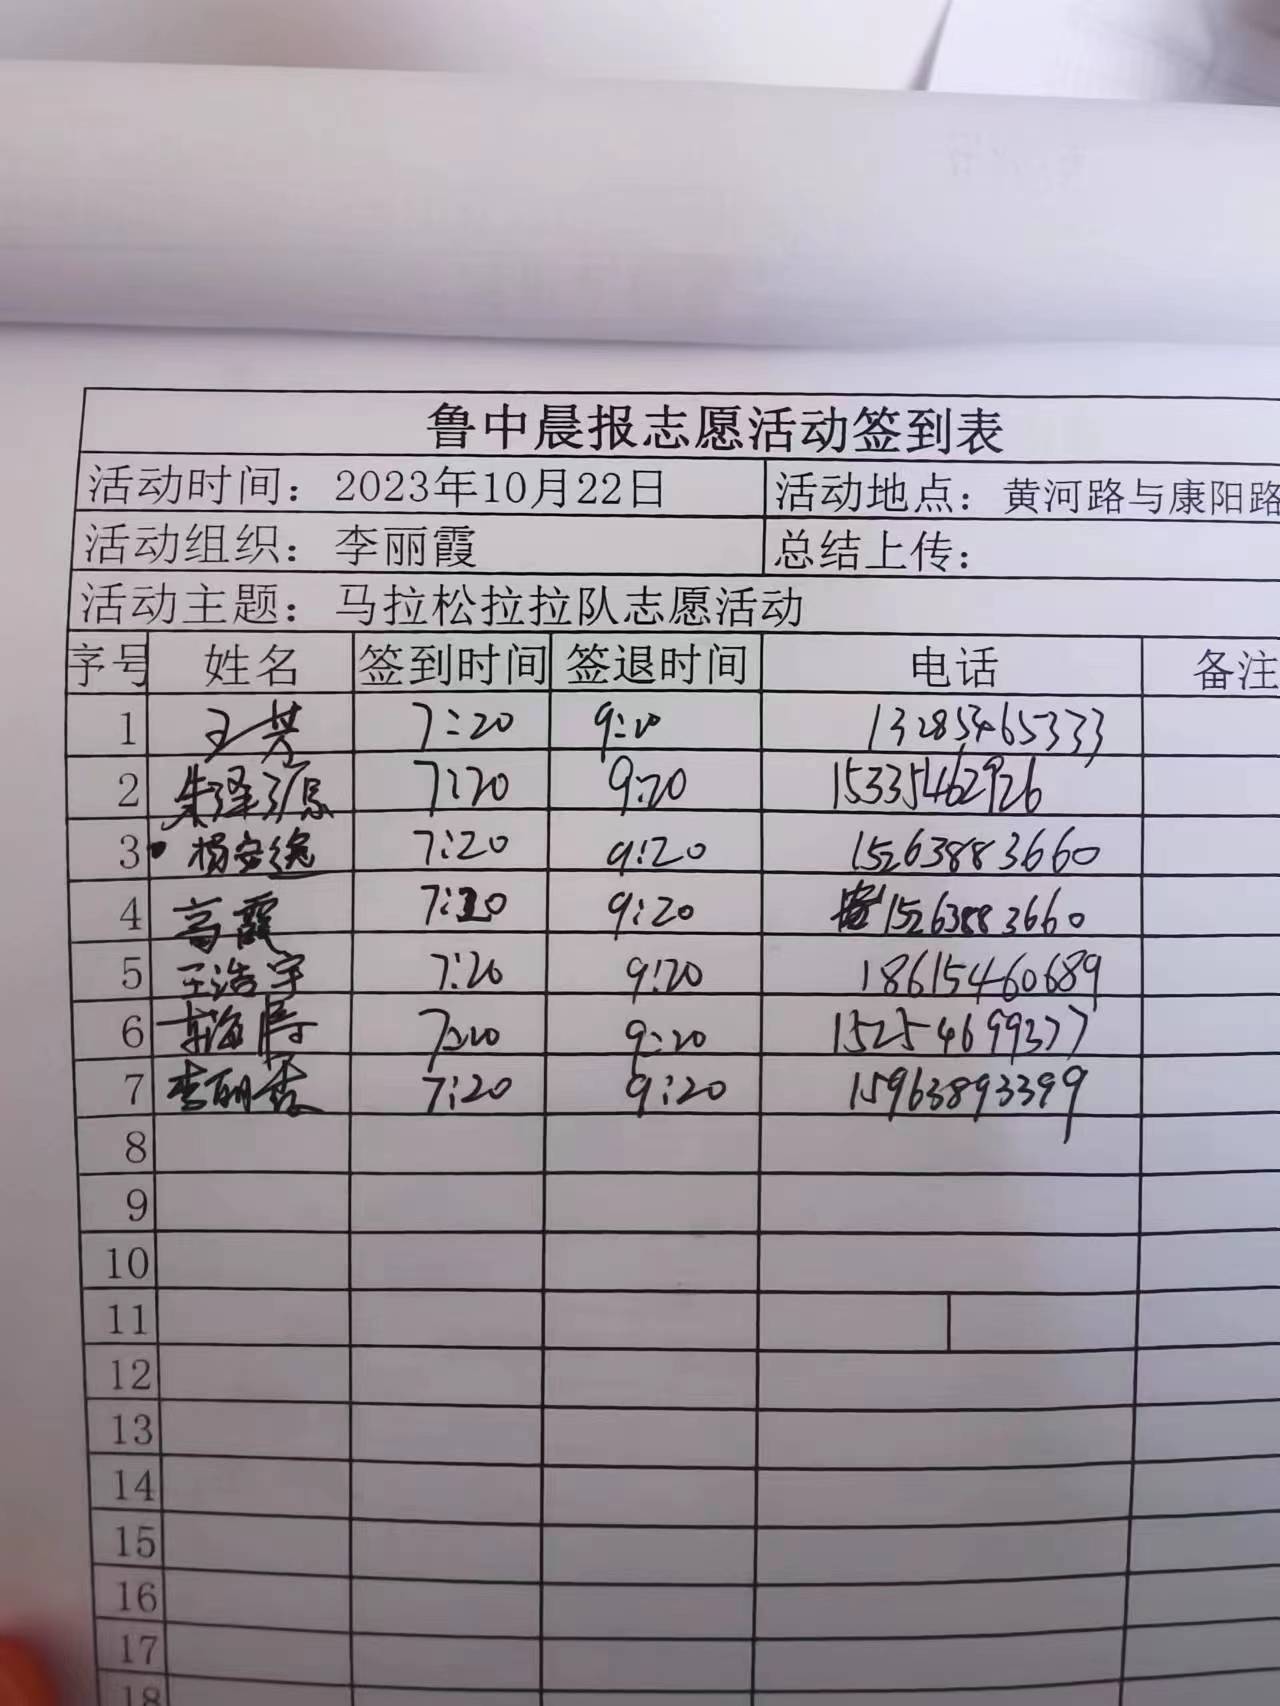 鲁中晨报志愿活动签到表
活动时间：2023年10月22日 活动地点：黄河路与康阳路
活动组织：李丽霞 总结上传：
活动主题：马拉松拉拉队志愿活动
序号 姓名 签到时间 签退时间 电话 备注
1 王芳 7:20 9:20 13285465333
2 朱泽源 7:20 9:20 15335462926
3 杨安逸 7:20 9:20 15263883660
4 高霞 7:20 9:20 15263883660
5 王浩宇 7:20 9:20 18615460689
6 7:20 9:20 15254699377
7 李丽霞 7:20 9:20 15963893399
8
9
10
11
12
13
14
15
16
17
18